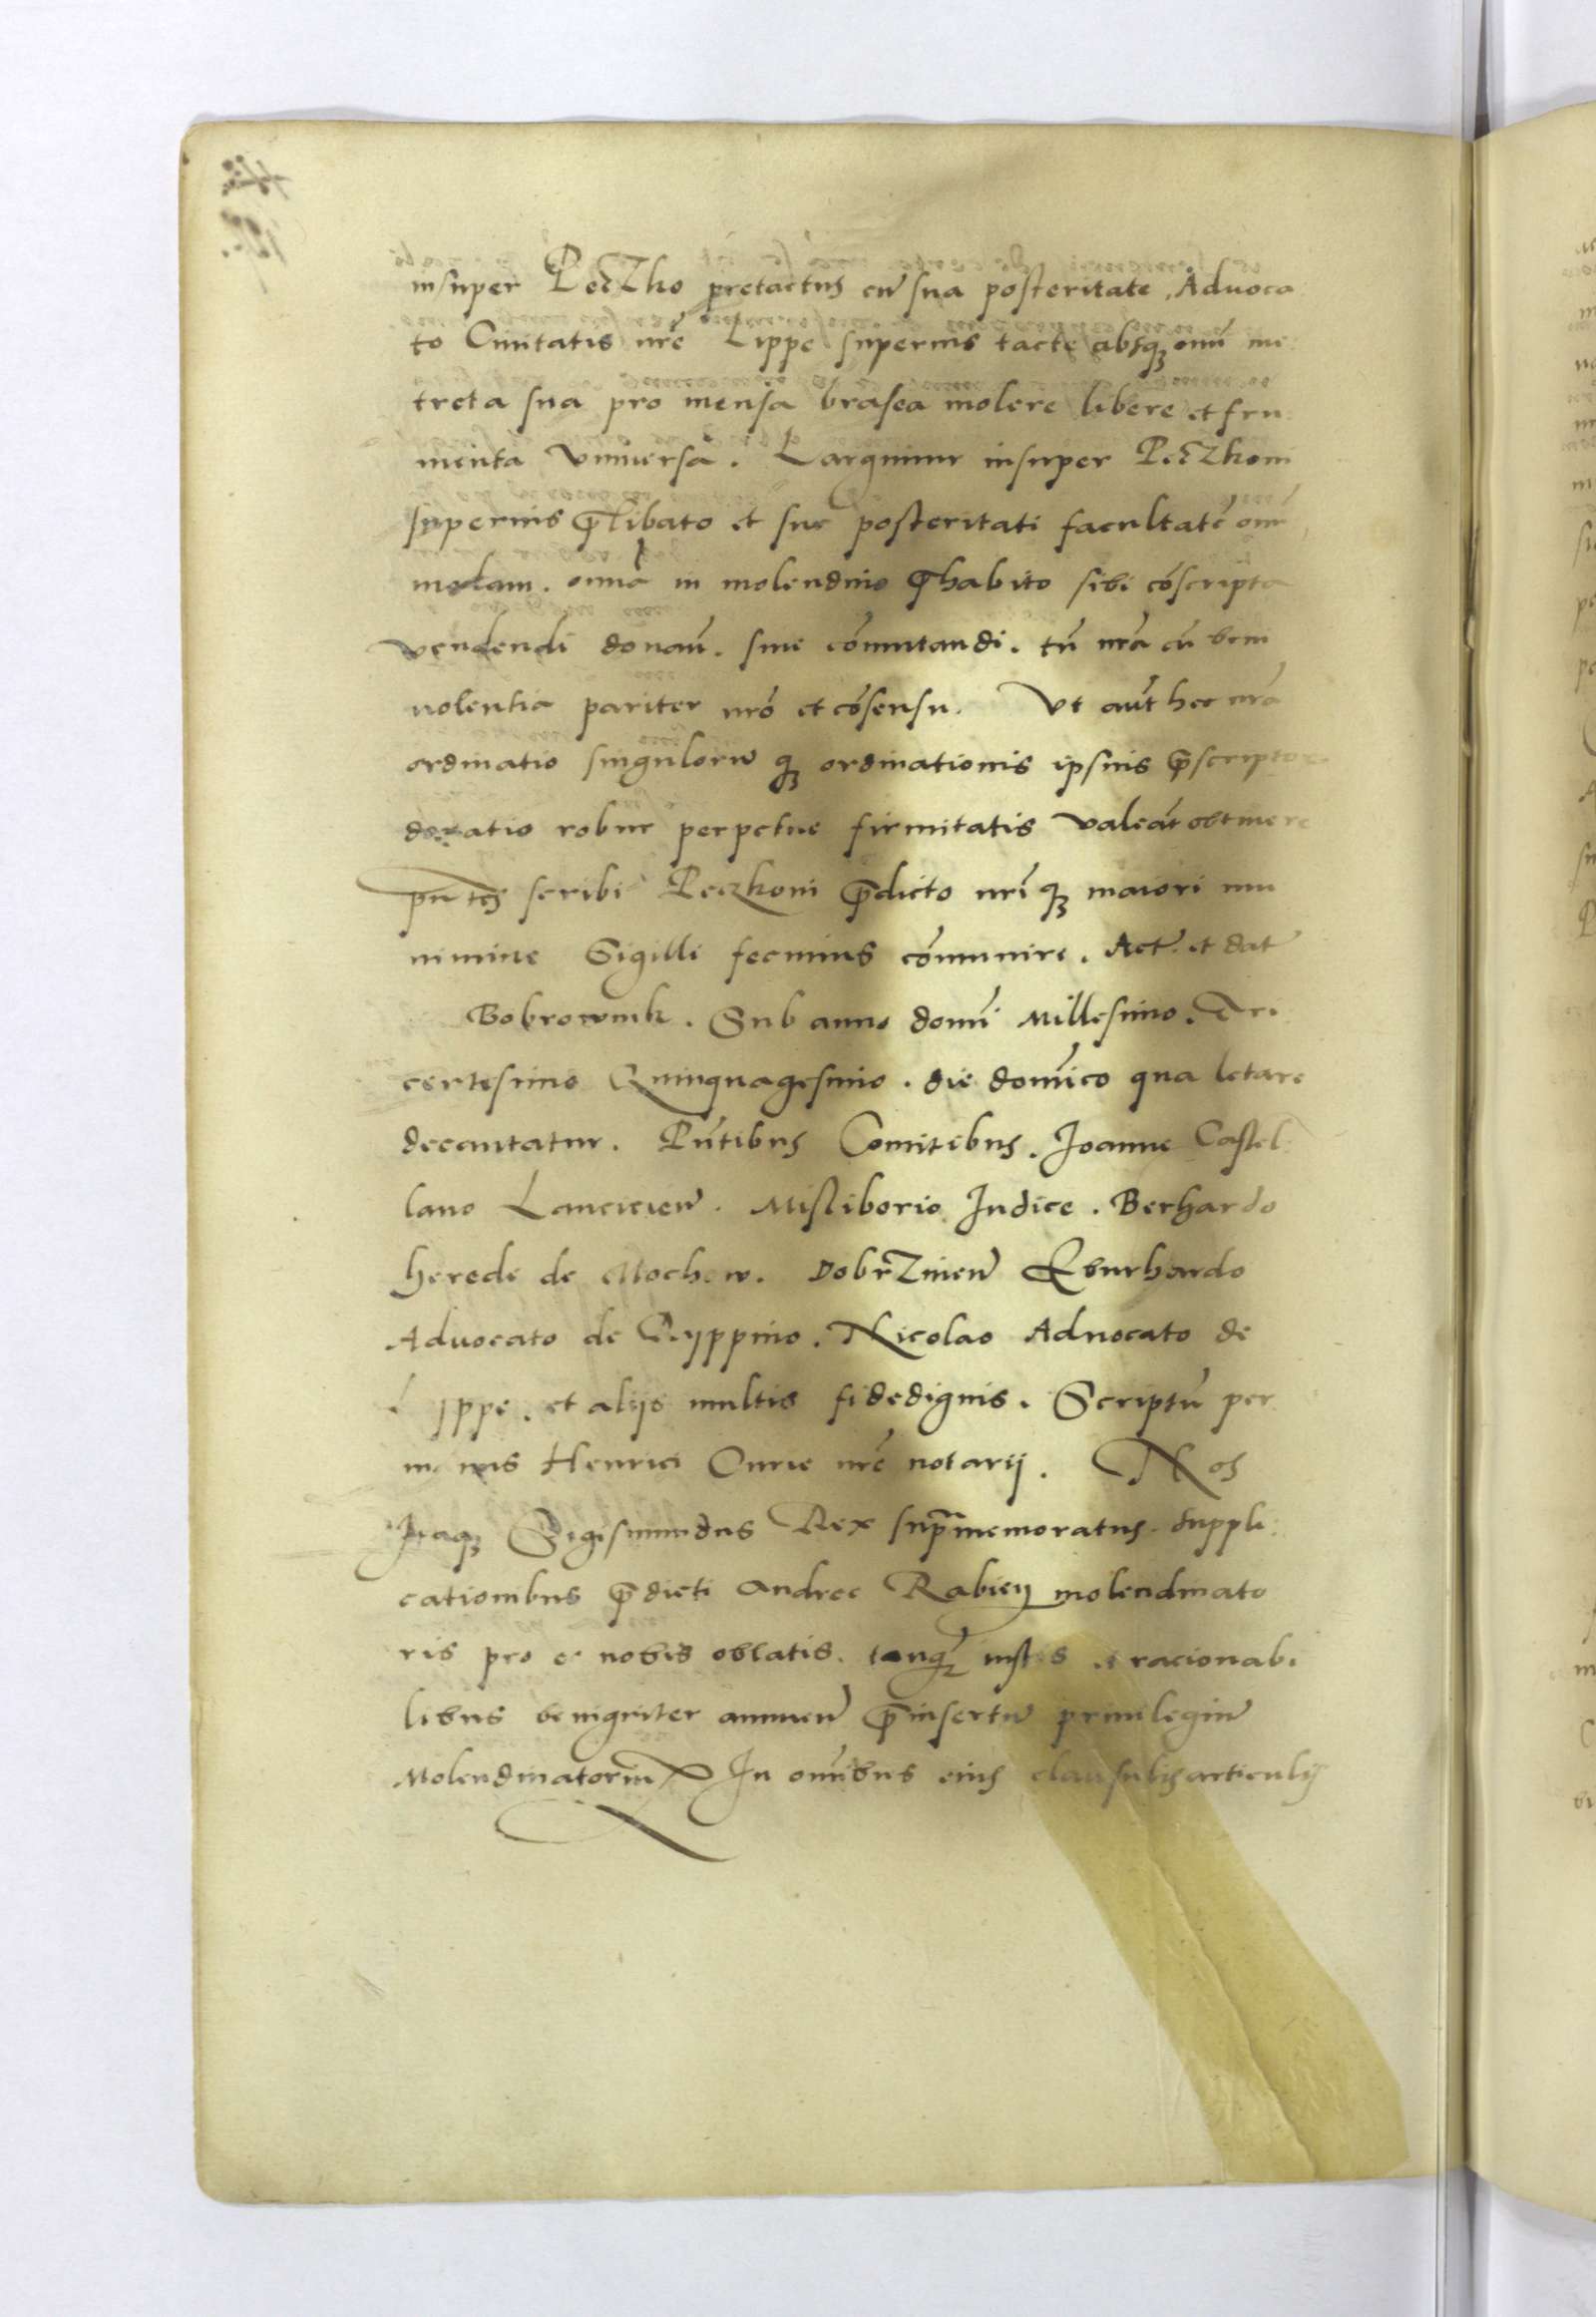 insuper Peczko pretactus cũ sua posteritate, Aduoca
to Ciuitatis nr̃e Lippe superius tacte absqꝫ omñ me
treta sua pro mensa brasea molere libere et fru
menta vniuersa. Largimur insuper Peczkoni
superius p̃libato et sue posteritati facultatẽ omĩ
modam. omnia in molendino p̃habito sibi cõscripta
vendendi donañ. siue cõmutandi. tñ nr̃a cũ beni
uolentia pariter nr̃o et cõsensu. Vt aũt hec nr̃a
ordinatio singulorũ qꝫ ordinationis ipsius p̃scriptor
donatio robur perpetue firmitatis valeãt obtinere
pñtes scribi Peczkoni p̃dicto nr̃i qꝫ maiori mu
nimine Sigilli fecimus cõmunire. Act. et dat
Bobrownik. Sub anno domĩ Millesimo. Tri
centesimo Quinquagesimo. die domĩco qua letare
decantatur. Pñtibus Comitibus. Joanne Castel
lano Lancicieñ. Mistiborio Judice. Berhardo
herede de Mochow. Dobrzineñ Eburhardo
Aduocato de Ryppino. Nicolao Aduocato de
Lyppe. et alijs multis fidedignis. Scriptũ per
manus Henrici Curie nr̃e notarij. Nos
Itaqꝫ Sigismundus Rex supramemoratus. suppli
cationibus p̃dicti Andree Rabiey molendinato
ris pro eo nobis oblatis. tanqꝫ iustis et racionabi
libus benigniter annueñ p̃insertũ priuilegiũ
Molendinatoriũ In omĩbus eius clausulis articulis